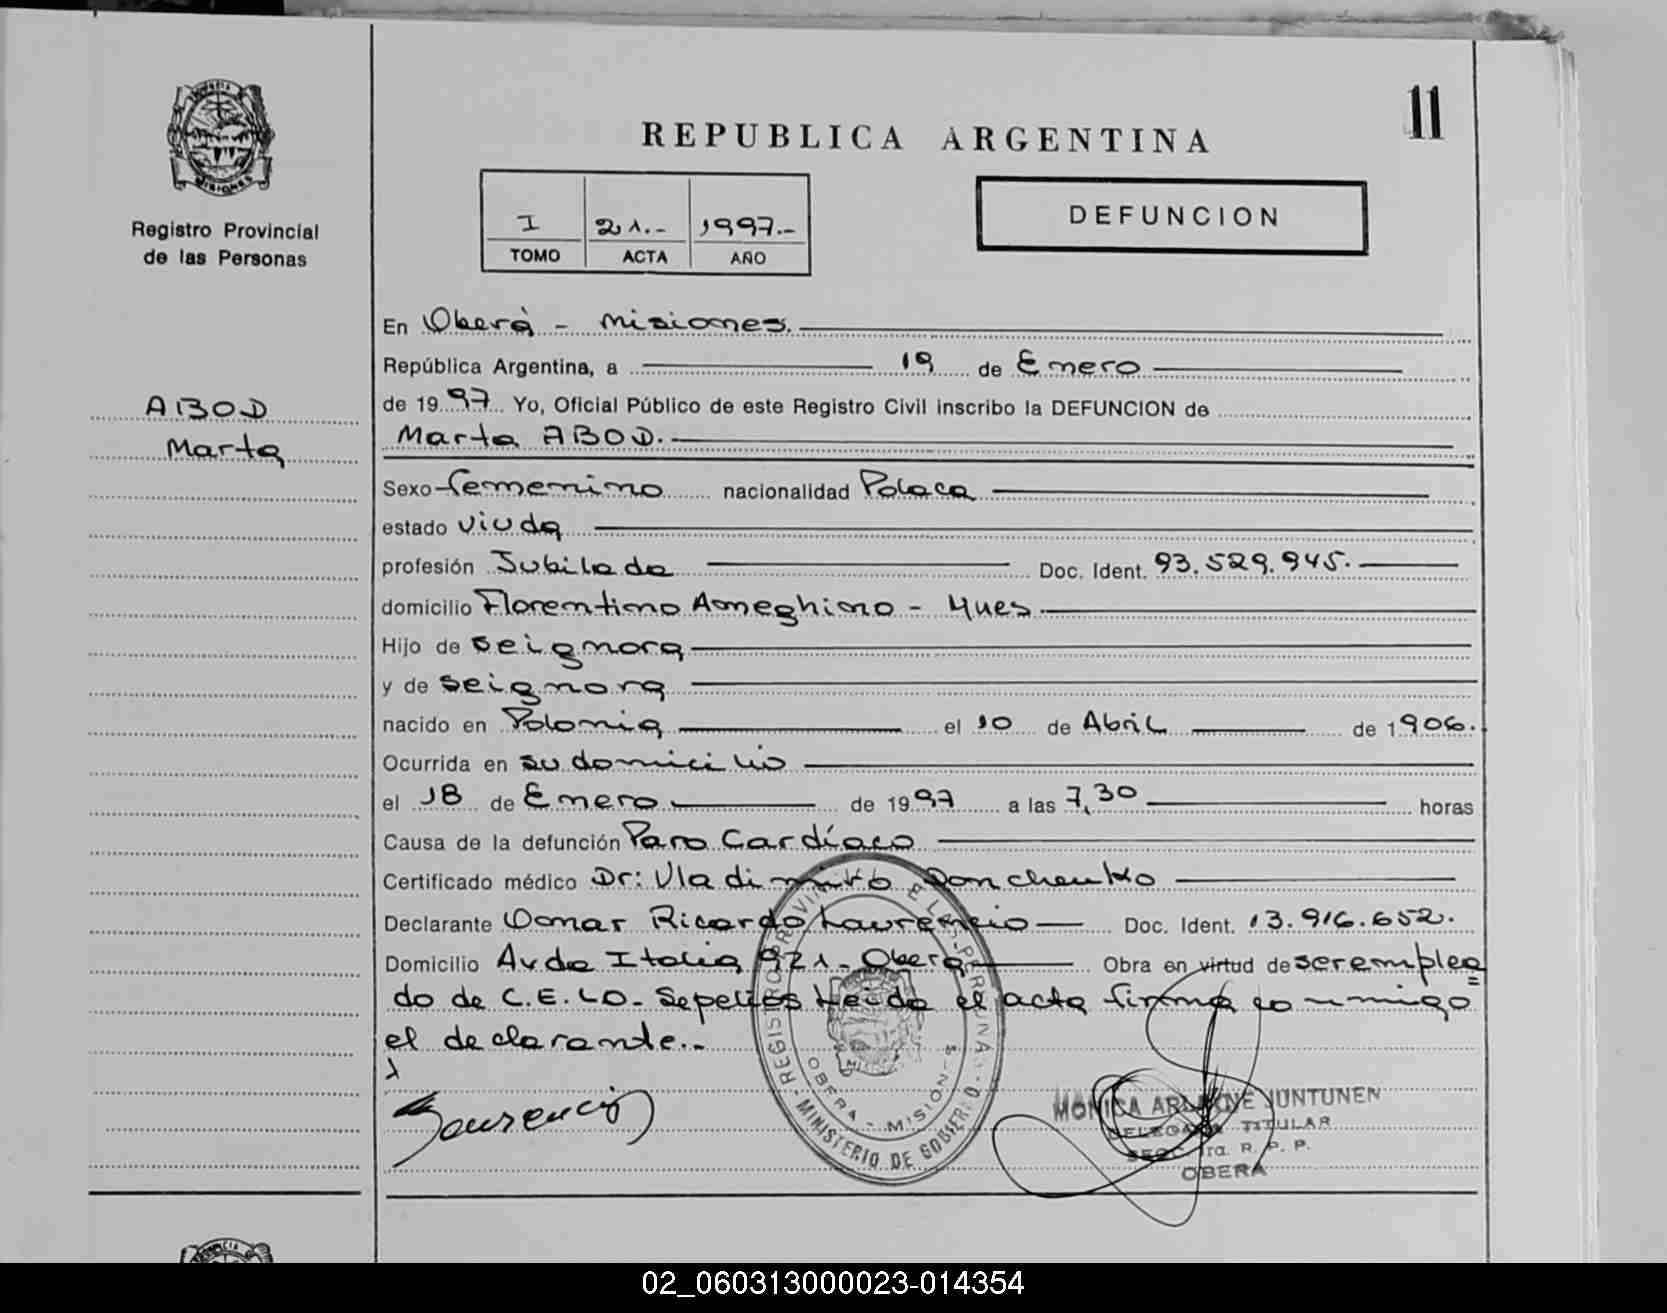 11
REPUBLICA ARGENTINA
DEFUNCION
I 21.- 1997.-
TOMO ACTA AÑO
MISIONES
Registro Provincial
de las Personas
ABOD
Marta
En Oberá - Misiones.
República Argentina, a 19 de Enero
de 1997 Yo, Oficial Público de este Registro Civil inscribo la DEFUNCION de
Marta ABOD.
Sexo femenino nacionalidad Polaca
estado viuda
profesión Jubilada Doc. Ident. 93.529.945.
domicilio Florentino Ameghino - Mnes.
Hijo de se ignora
y de se ignora
nacido en Polonia el 10 de Abril de 1906.
Ocurrida en su domicilio
el 18 de Enero de 1997 a las 7,30 horas
Causa de la defunción Paro Cardíaco
Certificado médico Dr: Vladimiro Donchenko
Declarante Osmar Ricardo Laurencio Doc. Ident. 13.916.652.
Domicilio Avda Italia 921 - Oberá Obra en virtud de ser emplea
do de C.E.L.O. Sepelios Leída el acta firma conmigo
el declarante.-
REGISTRO PROVINCIAL DE LAS PERSONAS
MINISTERIO DE GOBIERNO
OBERA - MISIONES
MONICA ARLAINE JUNTUNEN
DELEGADA TITULAR
SECC. 1ra. R. P. P.
OBERA
02_060313000023-014354